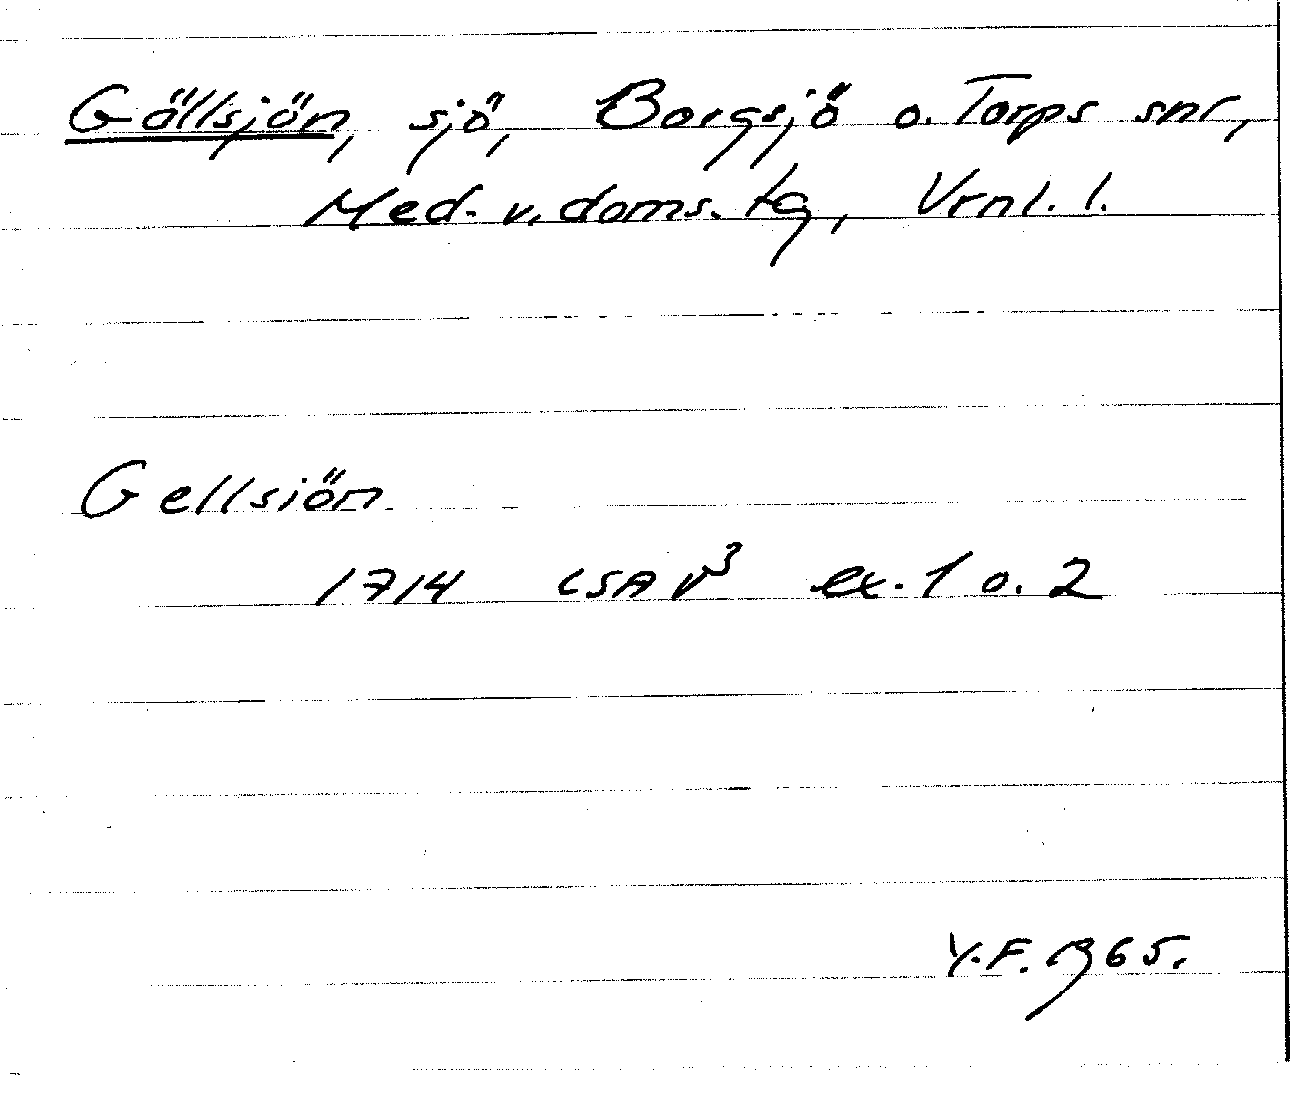 Gällsjön, sjö, Borgsjö o. Torps snr,
Med. v. doms. tg, Vrnl. l.
Gellsiön
1714 LSA V³ ex. 1 o. 2
Y.F. 1965.